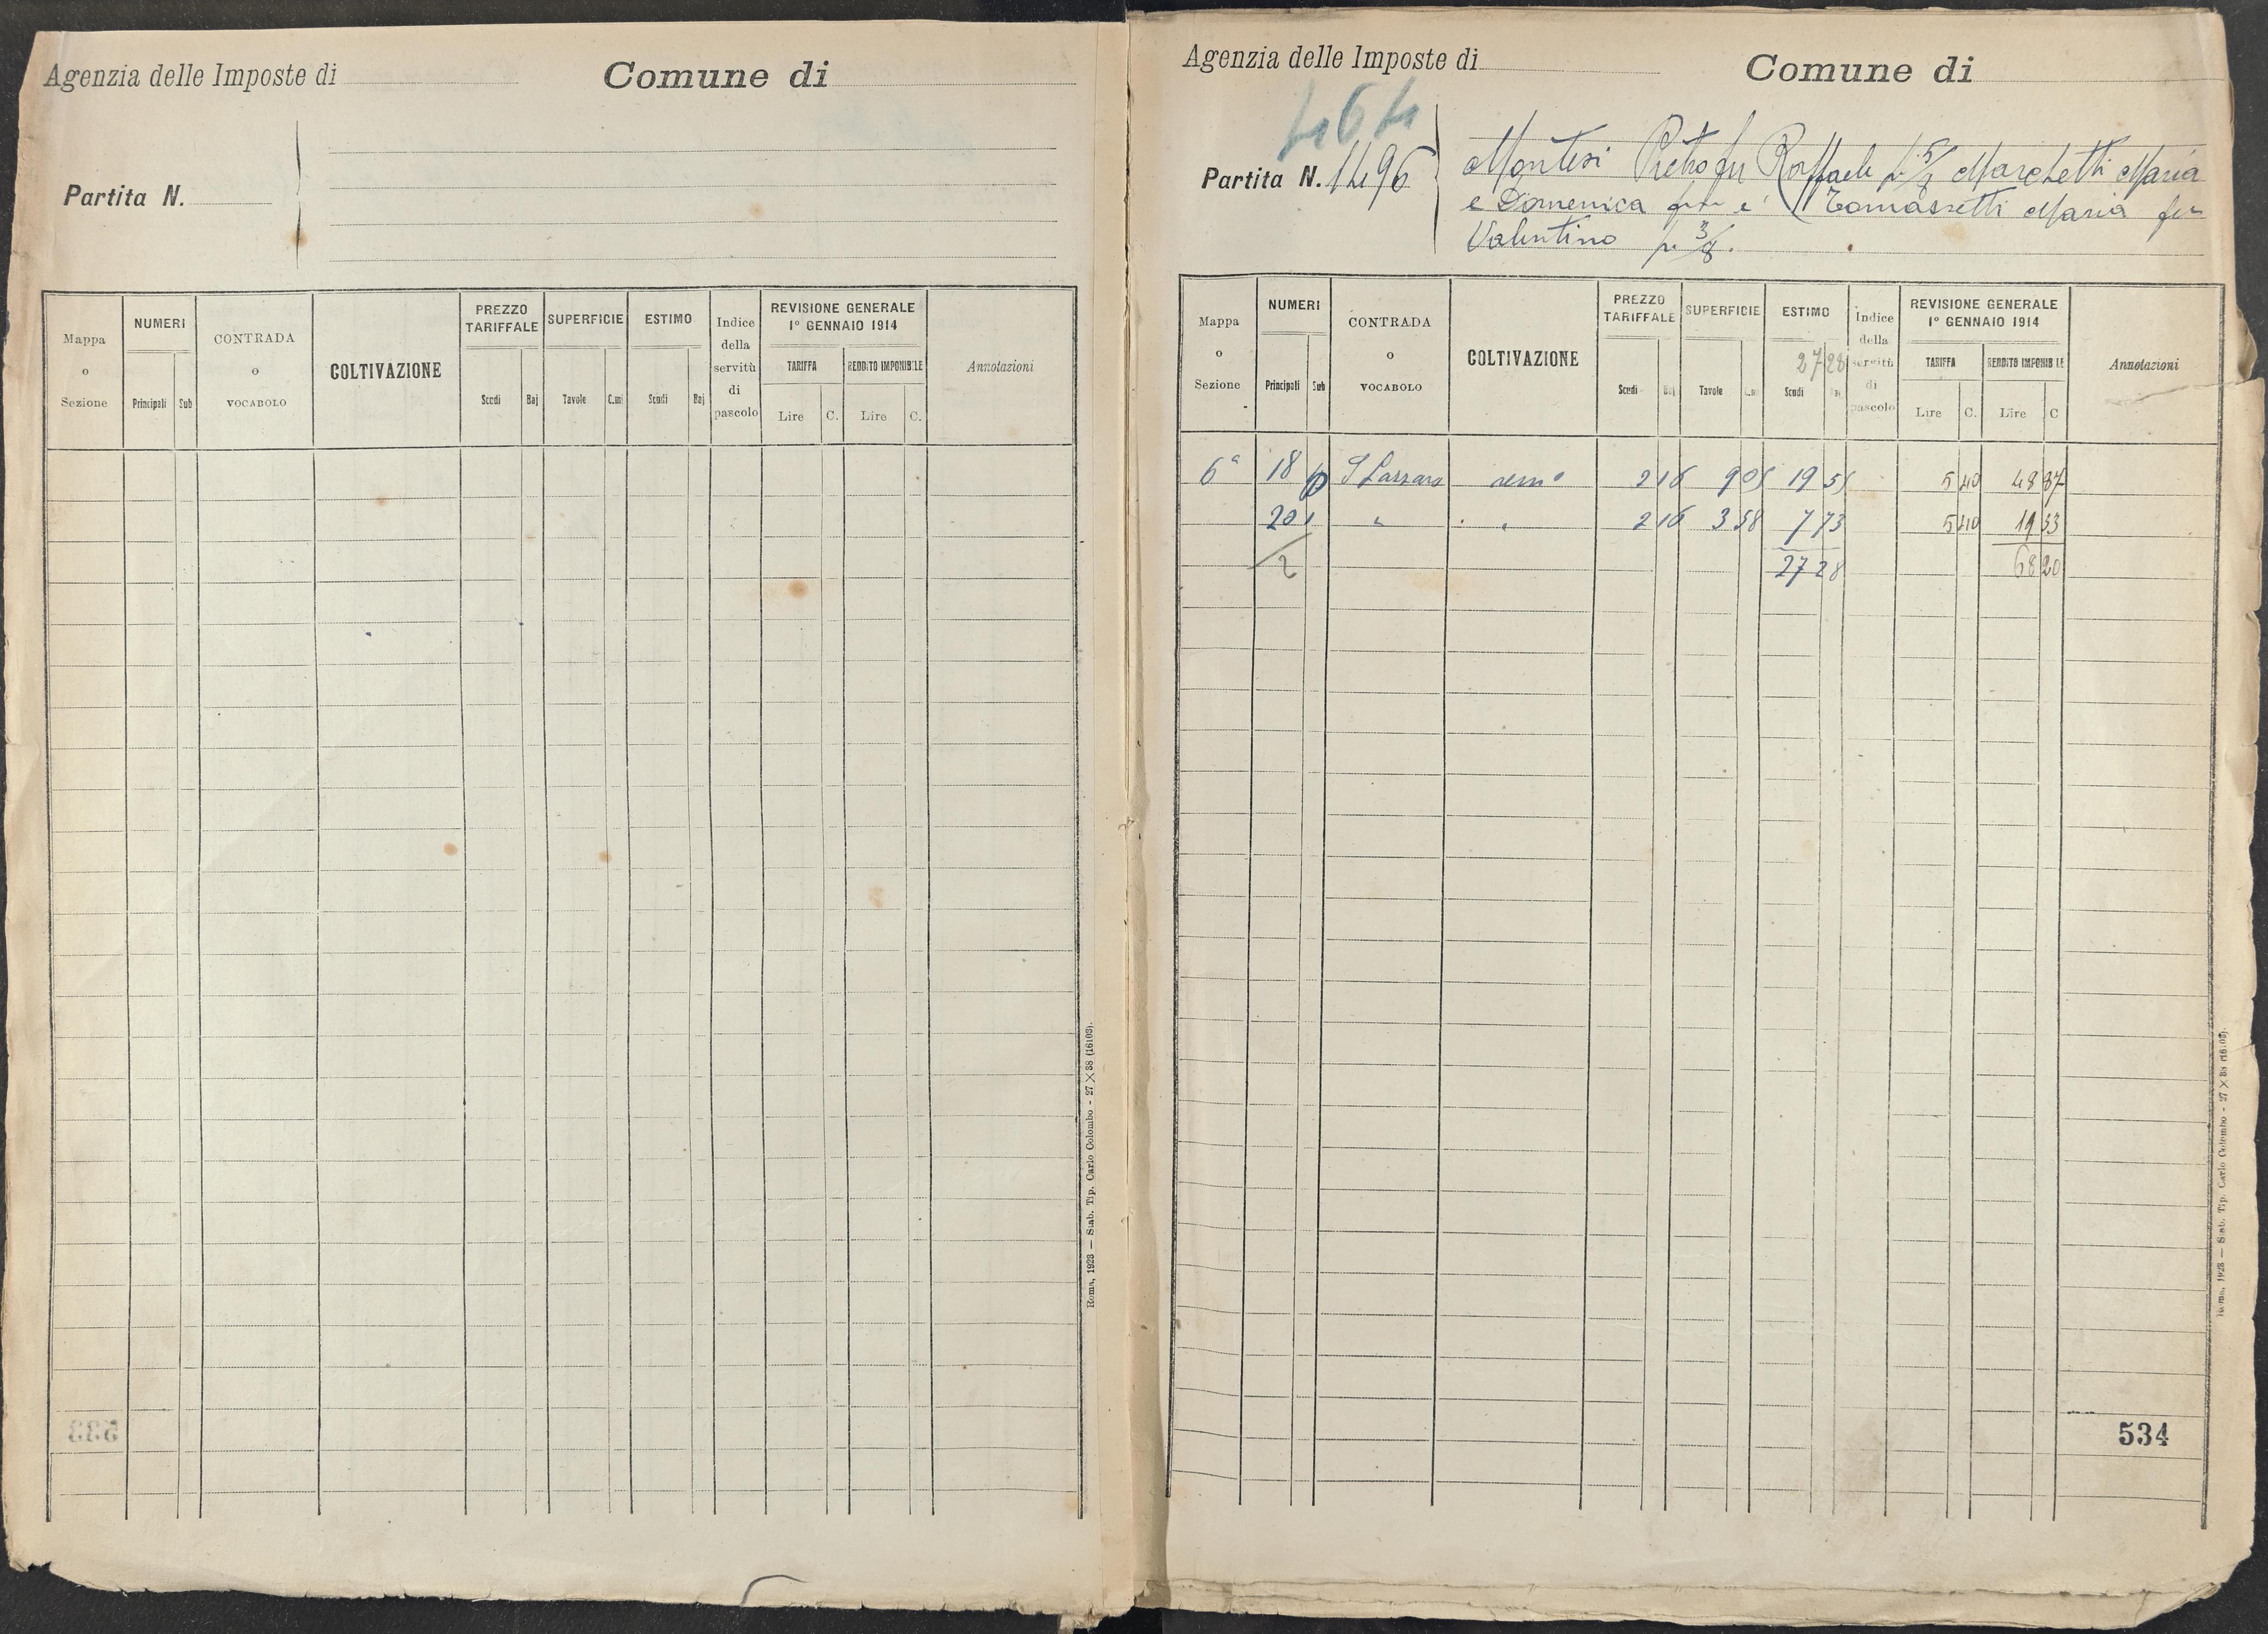 Agenzia delle Imposte di
Comune di
Partita N.
Mappa o Sezione
NUMERI
Principali Sub
CONTRADA o VOCABOLO
COLTIVAZIONE
PREZZO TARIFFALE
Scudi Baj
SUPERFICIE
Tavole C.mi
ESTIMO
Scudi Baj
Indice della servitù di pascolo
REVISIONE GENERALE
1° GENNAIO 1914
TARIFFA REDDITO IMPONIBILE
Lire C. Lire C.
Annotazioni
533
Roma, 1923 — Stab. Tip. Carlo Colombo - 27 × 38 (16103).
Agenzia delle Imposte di
Comune di
464
Partita N. 1496
Montesi Pietro fu Raffaele p. 5/8 Marchetti Maria
e Domenica e Tomassetti Maria fu
Valentino p. 3/8.
Mappa o Sezione
NUMERI
Principali Sub
CONTRADA o VOCABOLO
COLTIVAZIONE
PREZZO TARIFFALE
Scudi Baj
SUPERFICIE
Tavole C.mi
ESTIMO
27 28
Scudi Baj
Indice della servitù di pascolo
REVISIONE GENERALE
1° GENNAIO 1914
TARIFFA REDDITO IMPONIBILE
Lire C. Lire C
Annotazioni
6a 18 p S Lazzaro semo 2 16 9 05 19 55 5 40 48 87
201 " " 2 16 3 58 7 73 5 40 19 33
2 27 28 68 20
534
Roma, 1923 — Stab. Tip. Carlo Colombo - 27 × 38 (16103).